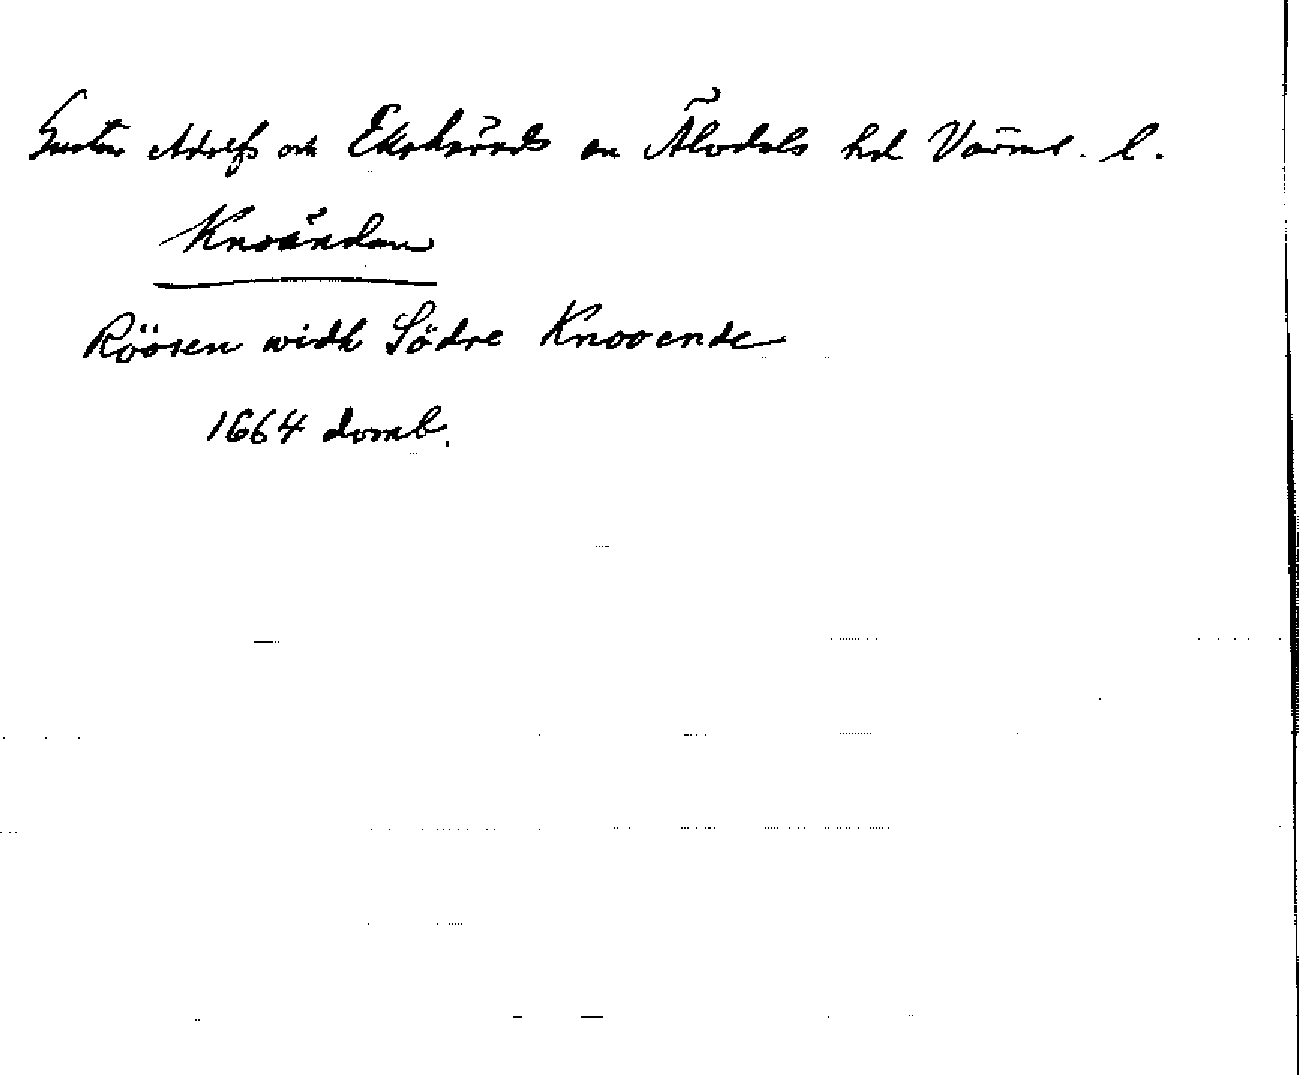 Gustav Adolfs och Ekshärads sn Älvdals hd Värml. l.
Knoändan
Röösen widh Södre Knooende
1664 domb.